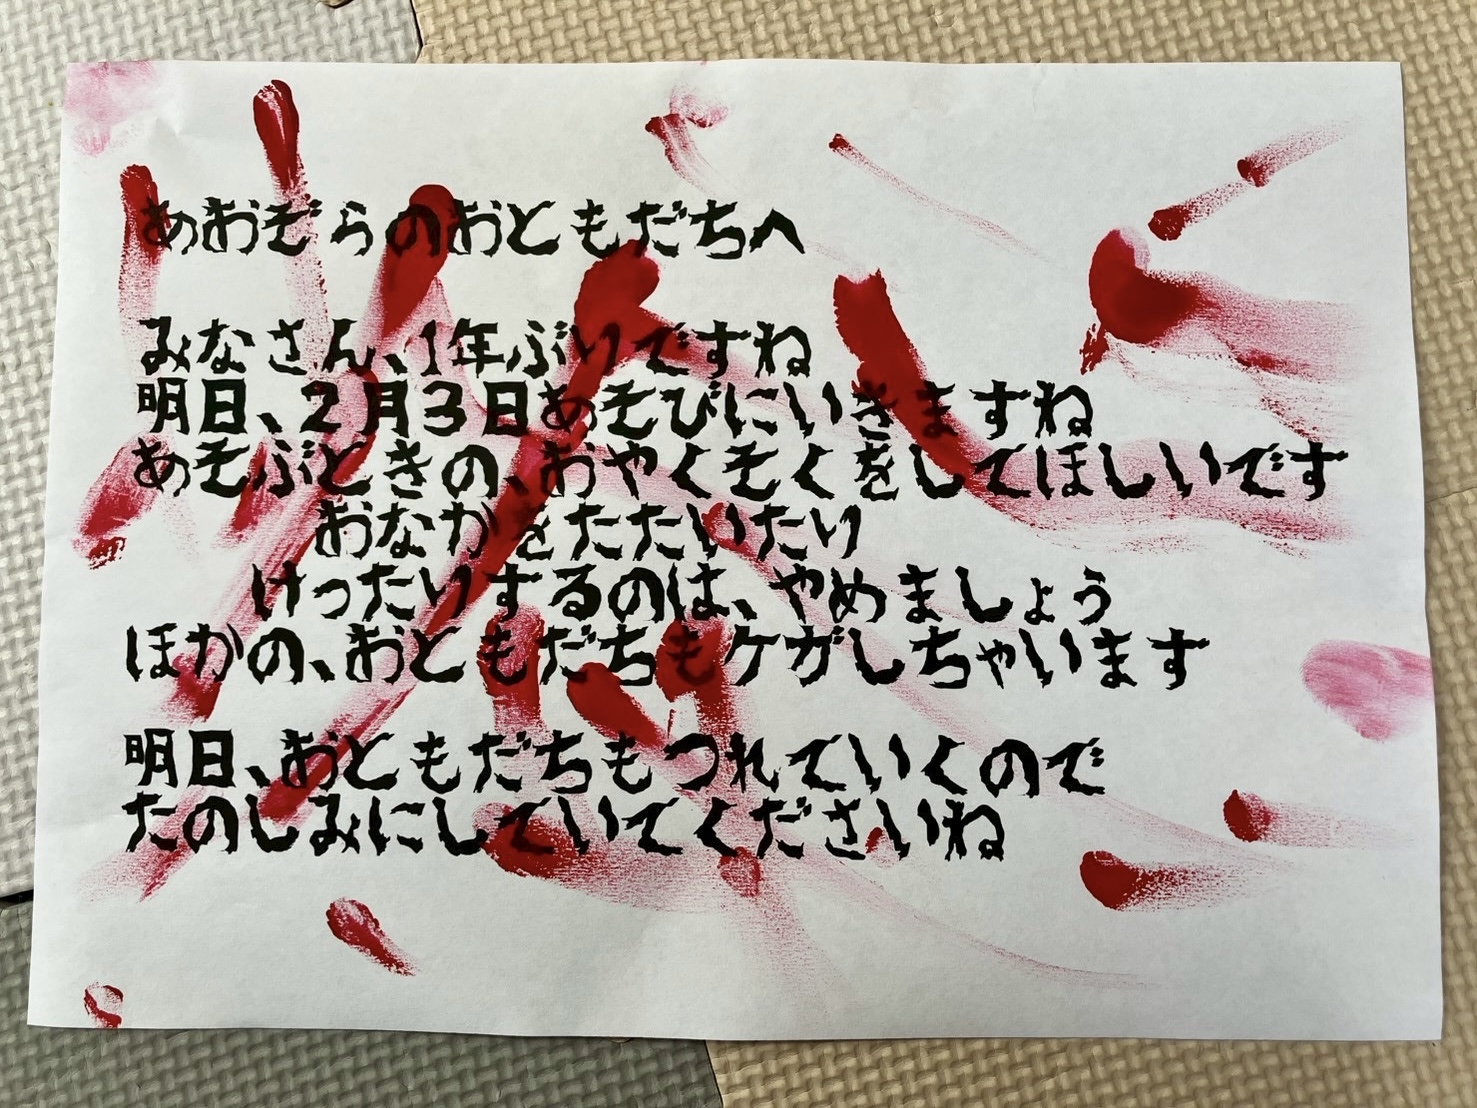 あおぞらのおともだちへ
みなさん、1年ぶりですね
明日、2月3日あそびにいきますね
あそぶときの、おやくそくをしてほしいです
おなかをたたいたり
けったりするのは、やめましょう
ほかの、おともだちもケガしちゃいます
明日、おともだちもつれていくので
たのしみにしていてくださいね